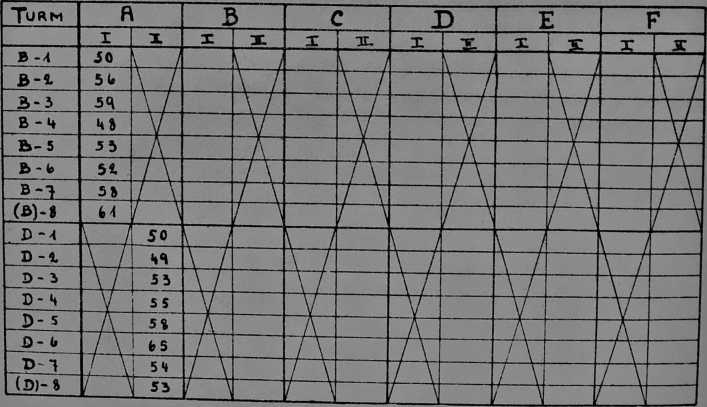 TURM A B C D E F
I II I II I II I II I II I II
B-1 50
B-2 56
B-3 59
B-4 48
B-5 53
B-6 52
B-7 58
(B)-8 61
D-1 50
D-2 49
D-3 53
D-4 55
D-5 58
D-6 65
D-7 54
(D)-8 53